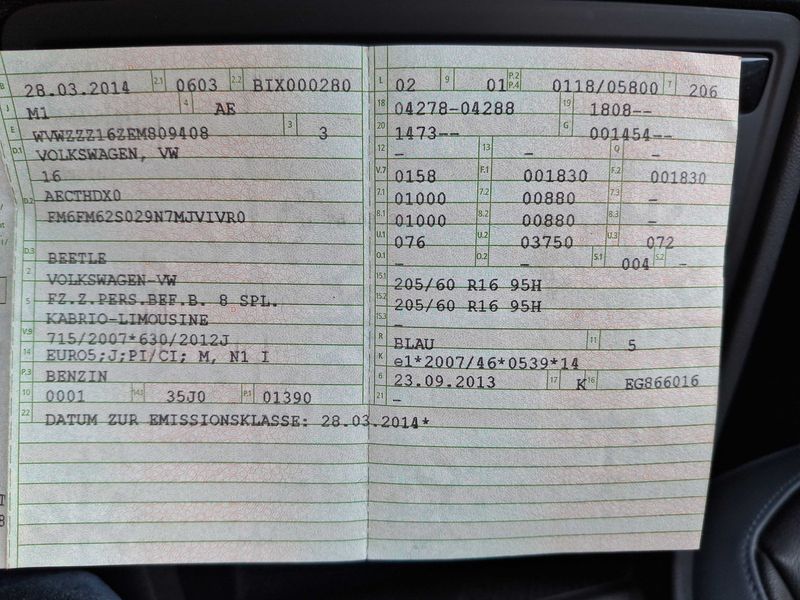 B 28.03.2014 2.1 0603 2.2 BIX000280
J M1 4 AE
E WVWZZZ16ZEM809408 3 3
D.1 VOLKSWAGEN, VW
16
D.2 AECTHDX0
FM6FM62S029N7MJVIVR0
D.3 BEETLE
2 VOLKSWAGEN-VW
5 FZ.Z.PERS.BEF.B. 8 SPL.
KABRIO-LIMOUSINE
V.9 715/2007*630/2012J
14 EURO5;J;PI/CI; M, N1 I
P.3 BENZIN
10 0001 14.1 35J0 P.1 01390
22 DATUM ZUR EMISSIONSKLASSE: 28.03.2014*
L 02 9 01 P.2 P.4 0118/05800 T 206
18 04278-04288 19 1808--
20 1473-- G 001454--
12 - 13 - Q -
V.7 0158 F.1 001830 F.2 001830
7.1 01000 7.2 00880 7.3 -
8.1 01000 8.2 00880 8.3 -
U.1 076 U.2 03750 U.3 072
O.1 - O.2 - S.1 004 S.2 -
15.1 205/60 R16 95H
15.2 205/60 R16 95H
15.3 -
R BLAU 11 5
K e1*2007/46*0539*14
6 23.09.2013 17 K 16 EG866016
21 -